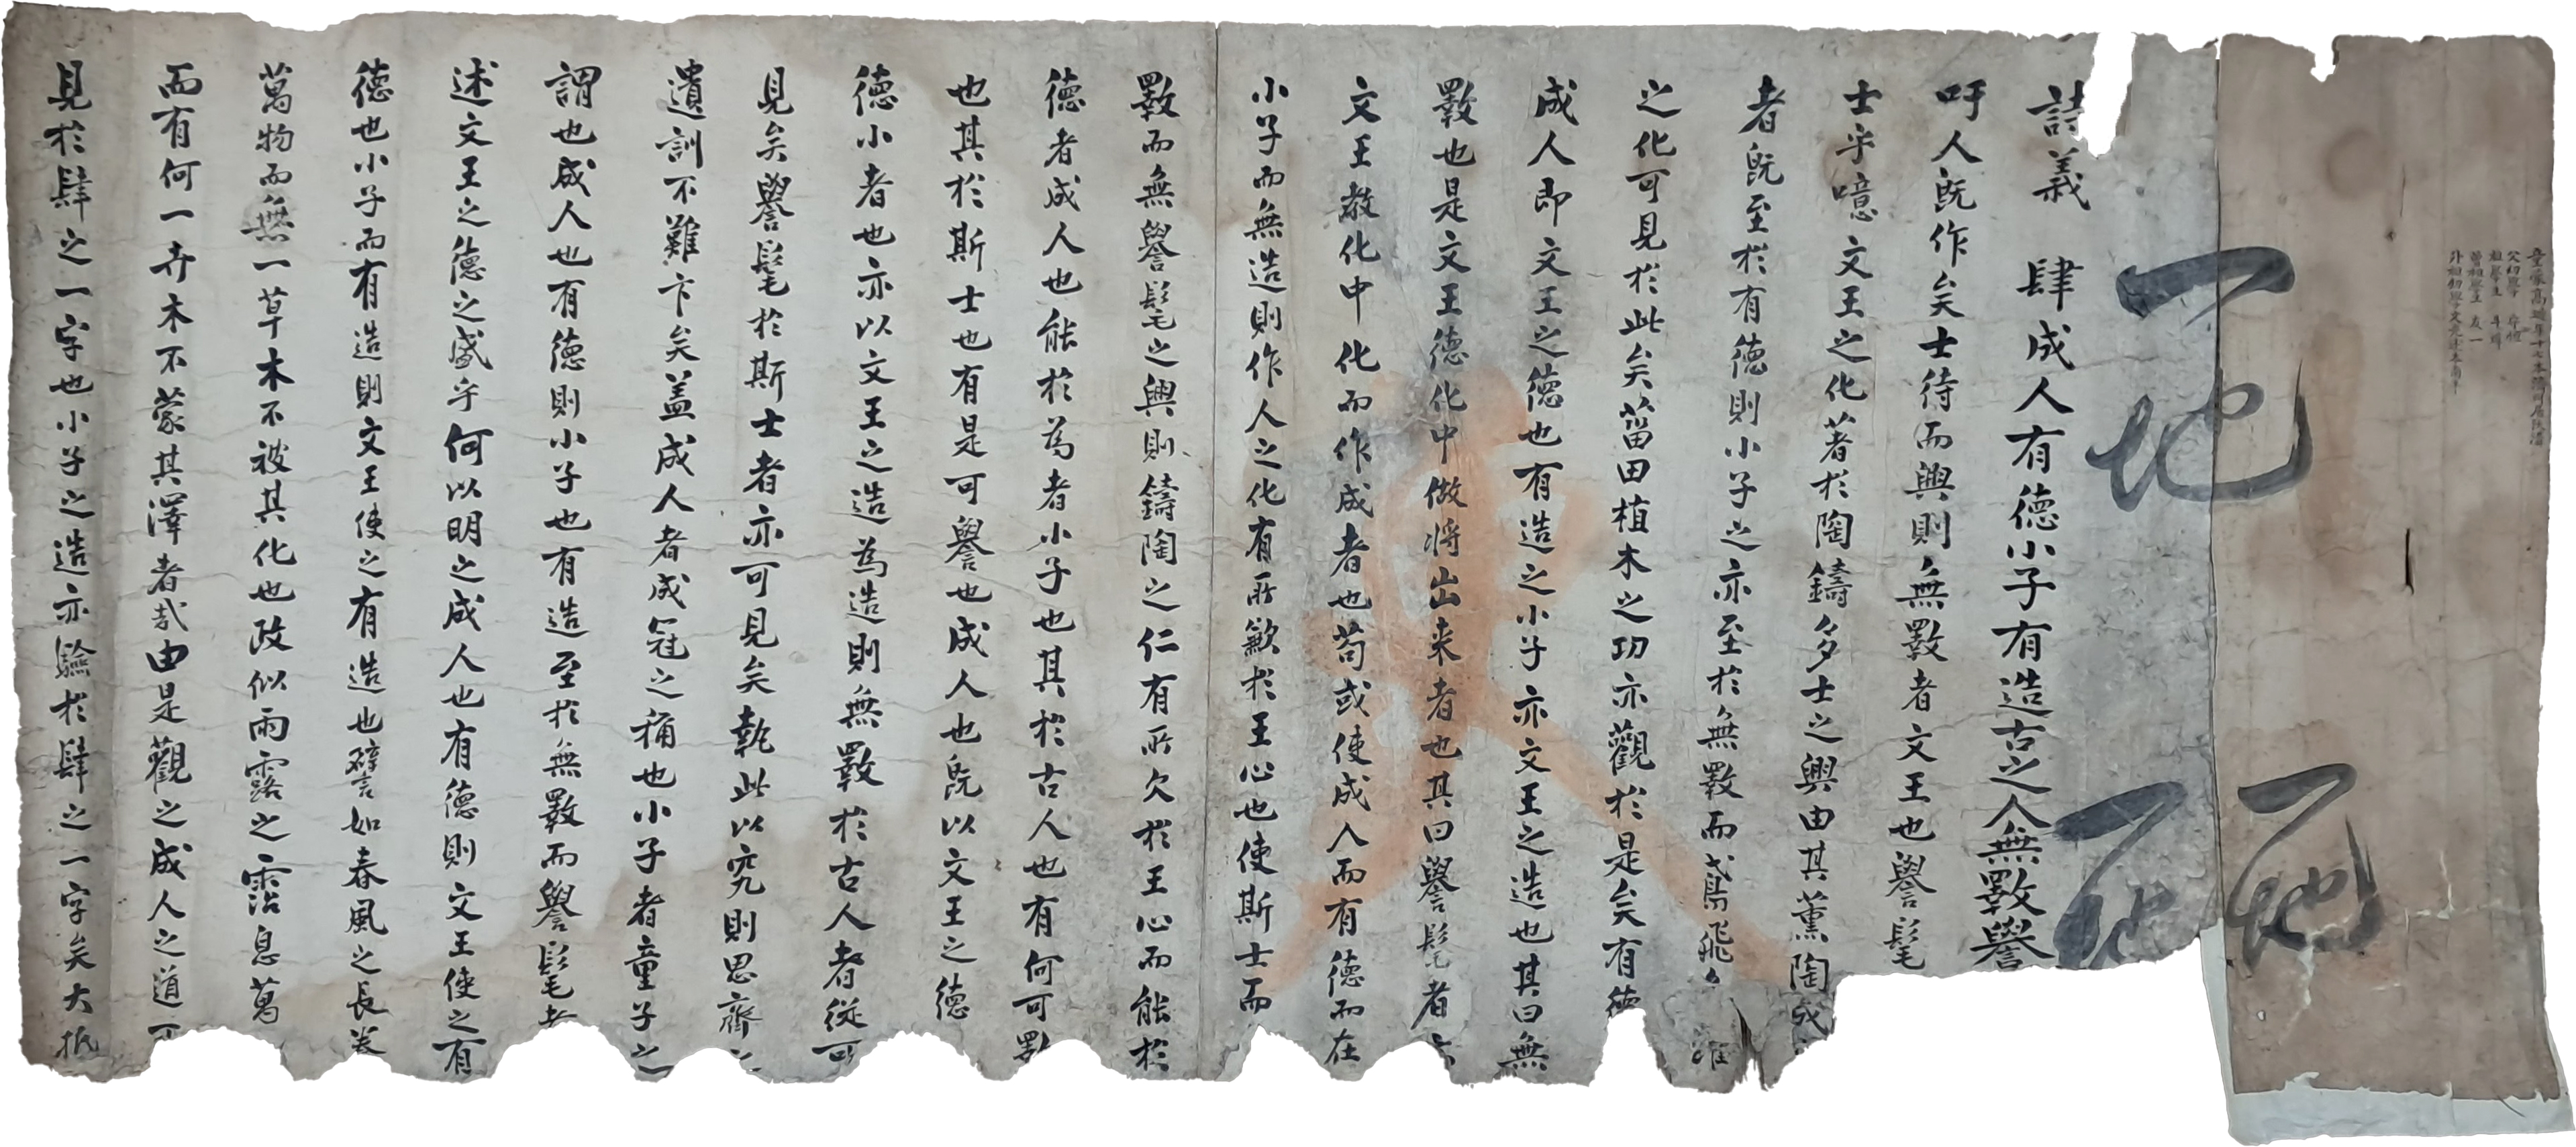 童蒙高
父幼學
祖學生
曾祖學生 友一
外祖幼學文
地
地
詩義 肆成人有德小子有造古之人無斁譽
吁人旣作矣士待而興則無斁者文王也譽髦
士乎噫文王之化著於陶鑄多士之興由其薰陶成
者旣至於有德則小子之亦至於無斁而鳶飛
之化可見於此矣菑田植木之功亦觀於是矣有德
成人即文王之德也有造之小子亦文王之造也其曰無
斁也是文王德化中做將出来者也其曰譽髦者
文王教化中化而作成者也苟或使成人而有德而在
小子而無造則作人之化有所歉於王心也使斯士而
斁而無譽髦之興則鑄陶之仁有所欠於王心而能於
德者成人也能於為者小子也其於古人也有何可斁
也其於斯士也有是可譽也成人也旣以文王之德
德小者也亦以文王之造為造則無斁於古人者從可
見矣譽髦於斯士者亦可見矣執此以究則思齊
遺訓不難卞矣盖成人者成冠之稱也小子者童子之
謂也成人也有德則小子也有造至於無斁而譽髦
述文王之德之盛乎何以明之成人也有德則文王使之有
德也小子而有造則文王使之有造也譬如春風之長養
萬物而無一草木不被其化也政似雨露之霑息萬
而有何一卉木不蒙其澤者哉由是觀之成人之道可
見於肆之一字也小子之造亦驗於肆之一字矣大抵